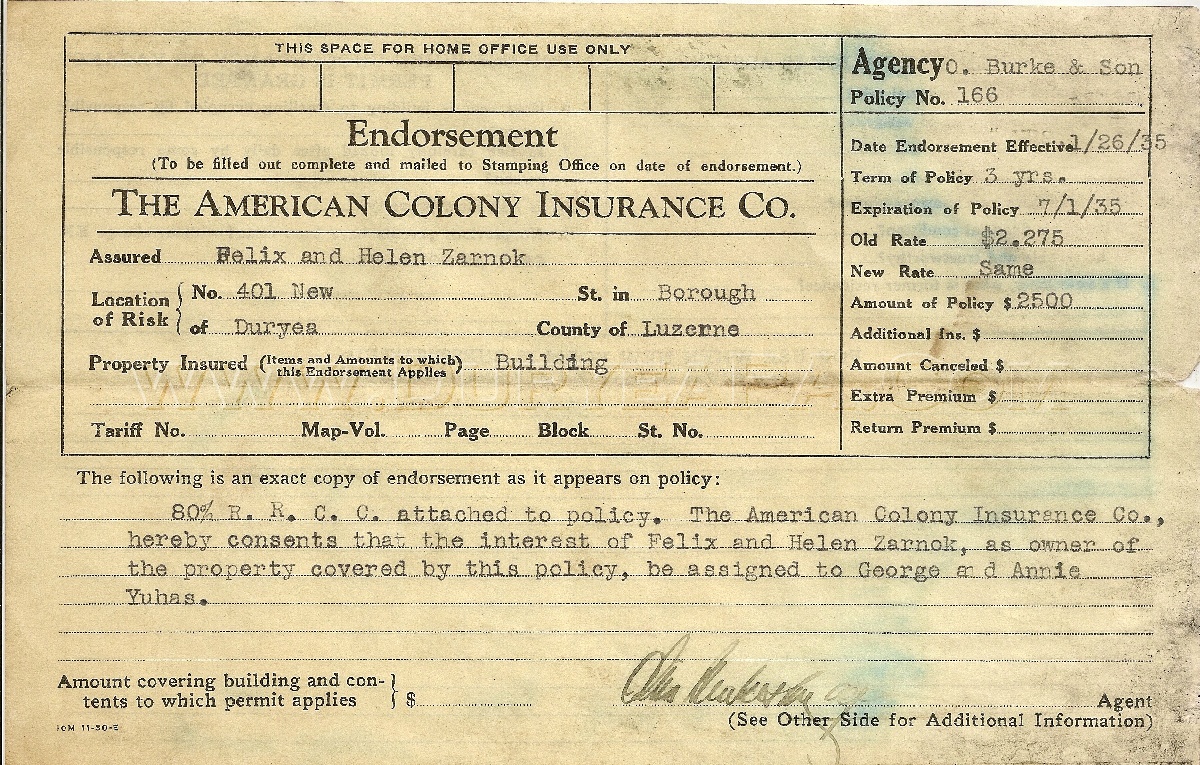 THIS SPACE FOR HOME OFFICE USE ONLY
Agency O. Burke & Son
Policy No. 166
Endorsement
(To be filled out complete and mailed to Stamping Office on date of endorsement.)
Date Endorsement Effective 1/26/35
Term of Policy 3 yrs.
THE AMERICAN COLONY INSURANCE CO.
Expiration of Policy 7/1/35
Old Rate $2.275
Assured Felix and Helen Zarnok
New Rate Same
Location of Risk { No. 401 New St. in Borough
Amount of Policy $ 2500
of Duryea County of Luzerne
Additional Ins. $
Property Insured (Items and Amounts to which this Endorsement Applies) Building
Amount Canceled $
WWW.DURYEAPA.COM
Extra Premium $
Tariff No. Map-Vol. Page Block St. No.
Return Premium $
The following is an exact copy of endorsement as it appears on policy:
80% R. R. C. C. attached to policy. The American Colony Insurance Co.,
hereby consents that the interest of Felix and Helen Zarnok, as owner of
the property covered by this policy, be assigned to George and Annie
Yuhas.
Amount covering building and con-
tents to which permit applies } $
Agent
(See Other Side for Additional Information)
11-30-E